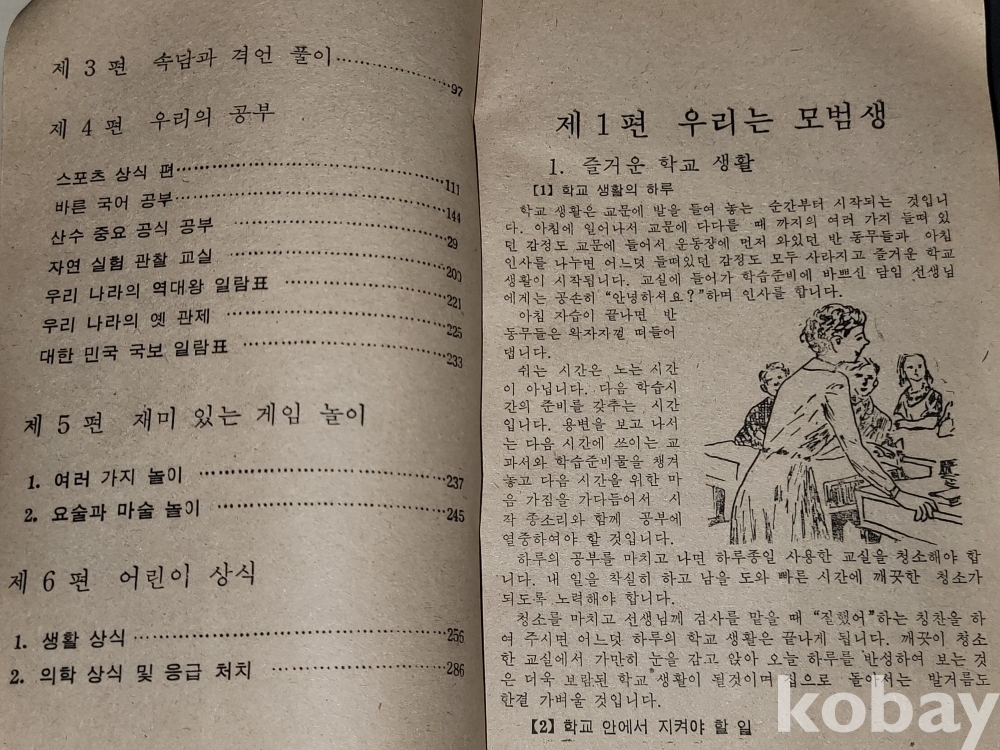 제 3 편 속담과 격언 풀이 97
제 4 편 우리의 공부
스포츠 상식 편 111
바른 국어 공부 144
산수 중요 공식 공부 29
자연 실험 관찰 교실 200
우리 나라의 역대왕 일람표 221
우리 나라의 옛 관제 225
대한 민국 국보 일람표 233
제 5 편 재미 있는 게임 놀이
1. 여러 가지 놀이 237
2. 요술과 마술 놀이 245
제 6 편 어린이 상식
1. 생활 상식 256
2. 의학 상식 및 응급 처치 286
제 1 편 우리는 모범생
1. 즐거운 학교 생활
[1] 학교 생활의 하루
학교 생활은 교문에 발을 들여 놓는 순간부터 시작되는 것입니
다. 아침에 일어나서 교문에 다다를 때 까지의 여러 가지 들떠 있
던 감정도 교문에 들어서 운동장에 먼저 와있던 반 동무들과 아침
인사를 나누면 어느덧 들떠있던 감정도 모두 사라지고 즐거운 학교
생활이 시작됩니다. 교실에 들어가 학습준비에 바쁘신 담임 선생님
에게는 공손히 “안녕하셔요?”하며 인사를 합니다.
아침 자습이 끝나면 반
동무들은 왁자자껄 떠들어
댑니다.
쉬는 시간은 노는 시간
이 아닙니다. 다음 학습시
간의 준비를 갖추는 시간
입니다. 용변을 보고 나서
는 다음 시간에 쓰이는 교
과서와 학습준비물을 챙겨
놓고 다음 시간을 위한 마
음 가짐을 가다듬어서 시
작 종소리와 함께 공부에
열중하여야 할 것입니다.
하루의 공부를 마치고 나면 하루종일 사용한 교실을 청소해야 합
니다. 내 일을 착실히 하고 남을 도와 빠른 시간에 깨끗한 청소가
되도록 노력해야 합니다.
청소를 마치고 선생님께 검사를 맡을 때 “잘했어”하는 칭찬을 하
여 주시면 어느덧 하루의 학교 생활은 끝나게 됩니다. 깨끗이 청소
한 교실에서 가만히 눈을 감고 앉아 오늘 하루를 반성하여 보는 것
은 더욱 보람된 학교 생활이 될것이며 집으로 돌아서는 발거름도
한결 가벼울 것입니다.
[2] 학교 안에서 지켜야 할 일
kobay